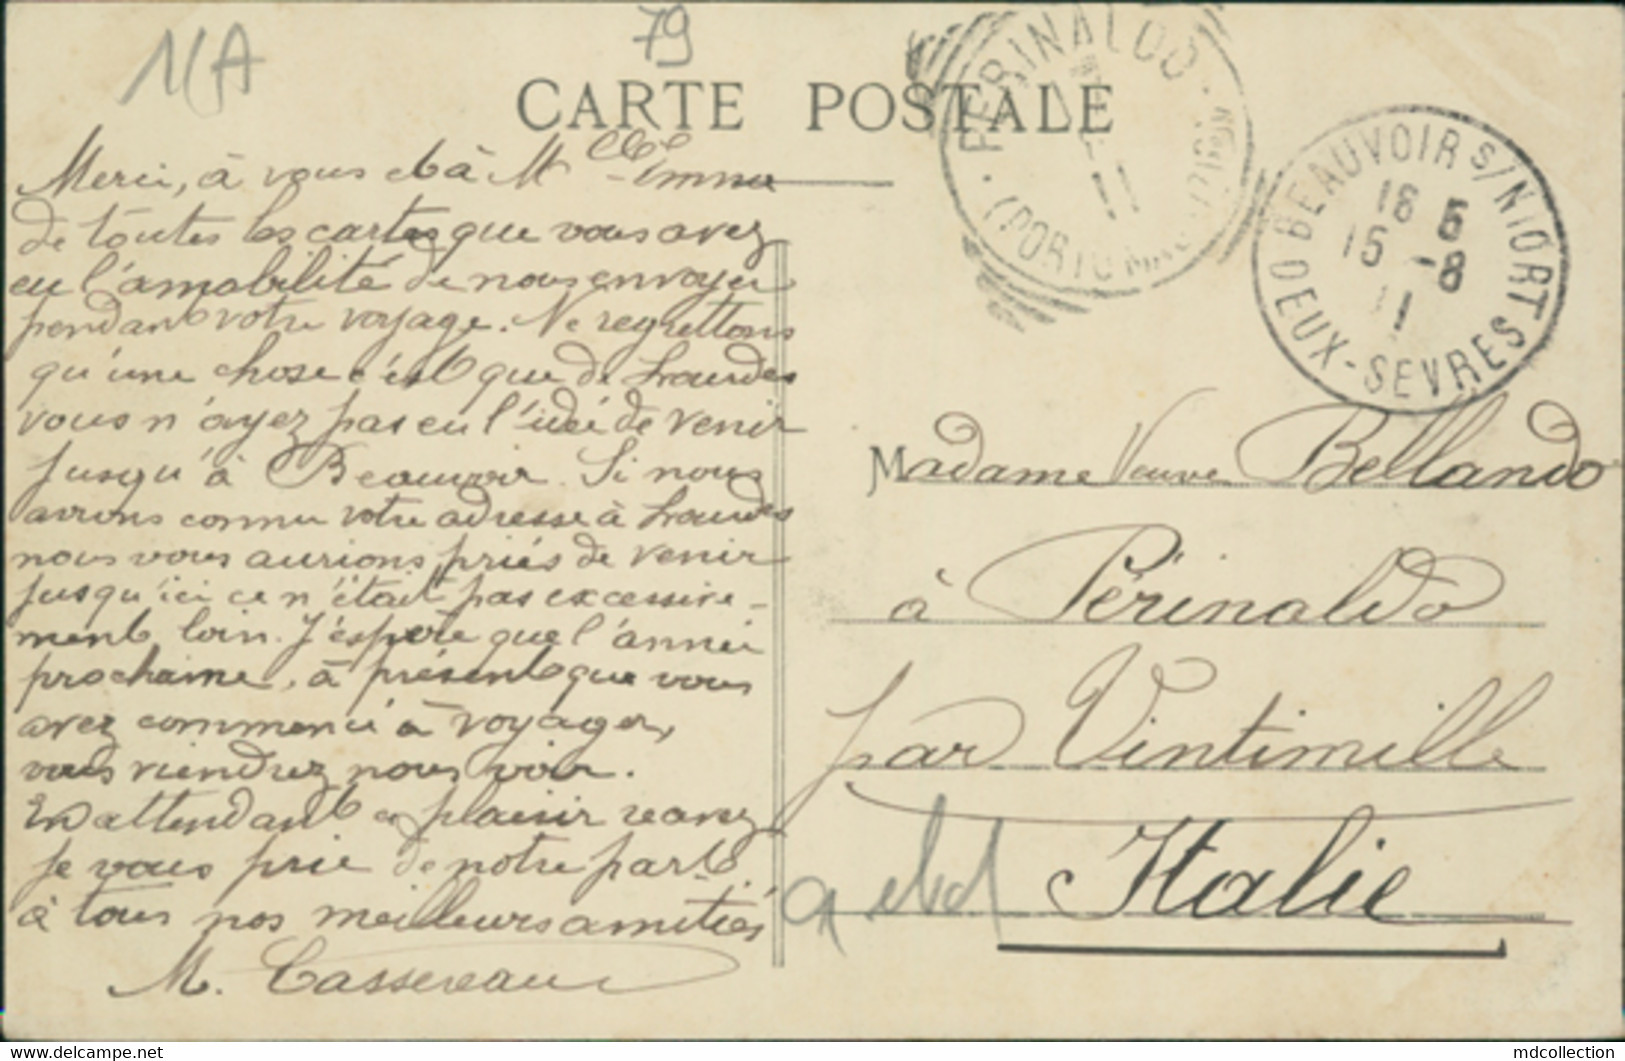 1(A
79
CARTE POSTALE
PERINALDO
(PORTO
11
BEAUVOIR S/NIORT
16 5
15 -8
11
DEUX-SEVRES
Merci, à vous et à Mlle Emma
de toutes les cartes que vous avez
eu l'amabilité de nous envoyer
pendant votre voyage. Ne regrettons
qu'une chose c'est que de Lourdes
vous n'ayez pas eu l'idée de venir
jusqu'à Beauvoir. Si nous
avions connu votre adresse à Lourdes
nous vous aurions priés de venir
jusqu'ici ce n'était pas excessive-
ment loin. J'espère que l'année
prochaine, à présent que vous
avez commencé à voyager,
vous viendrez nous voir.
En attendant ce plaisir recevez
je vous prie de notre part
à tous nos meilleurs amitiés
M. Cassereau
Madame Veuve Bellando
à Périnaldo
par Vintimille
Italie
www.delcampe.net
mdcollection